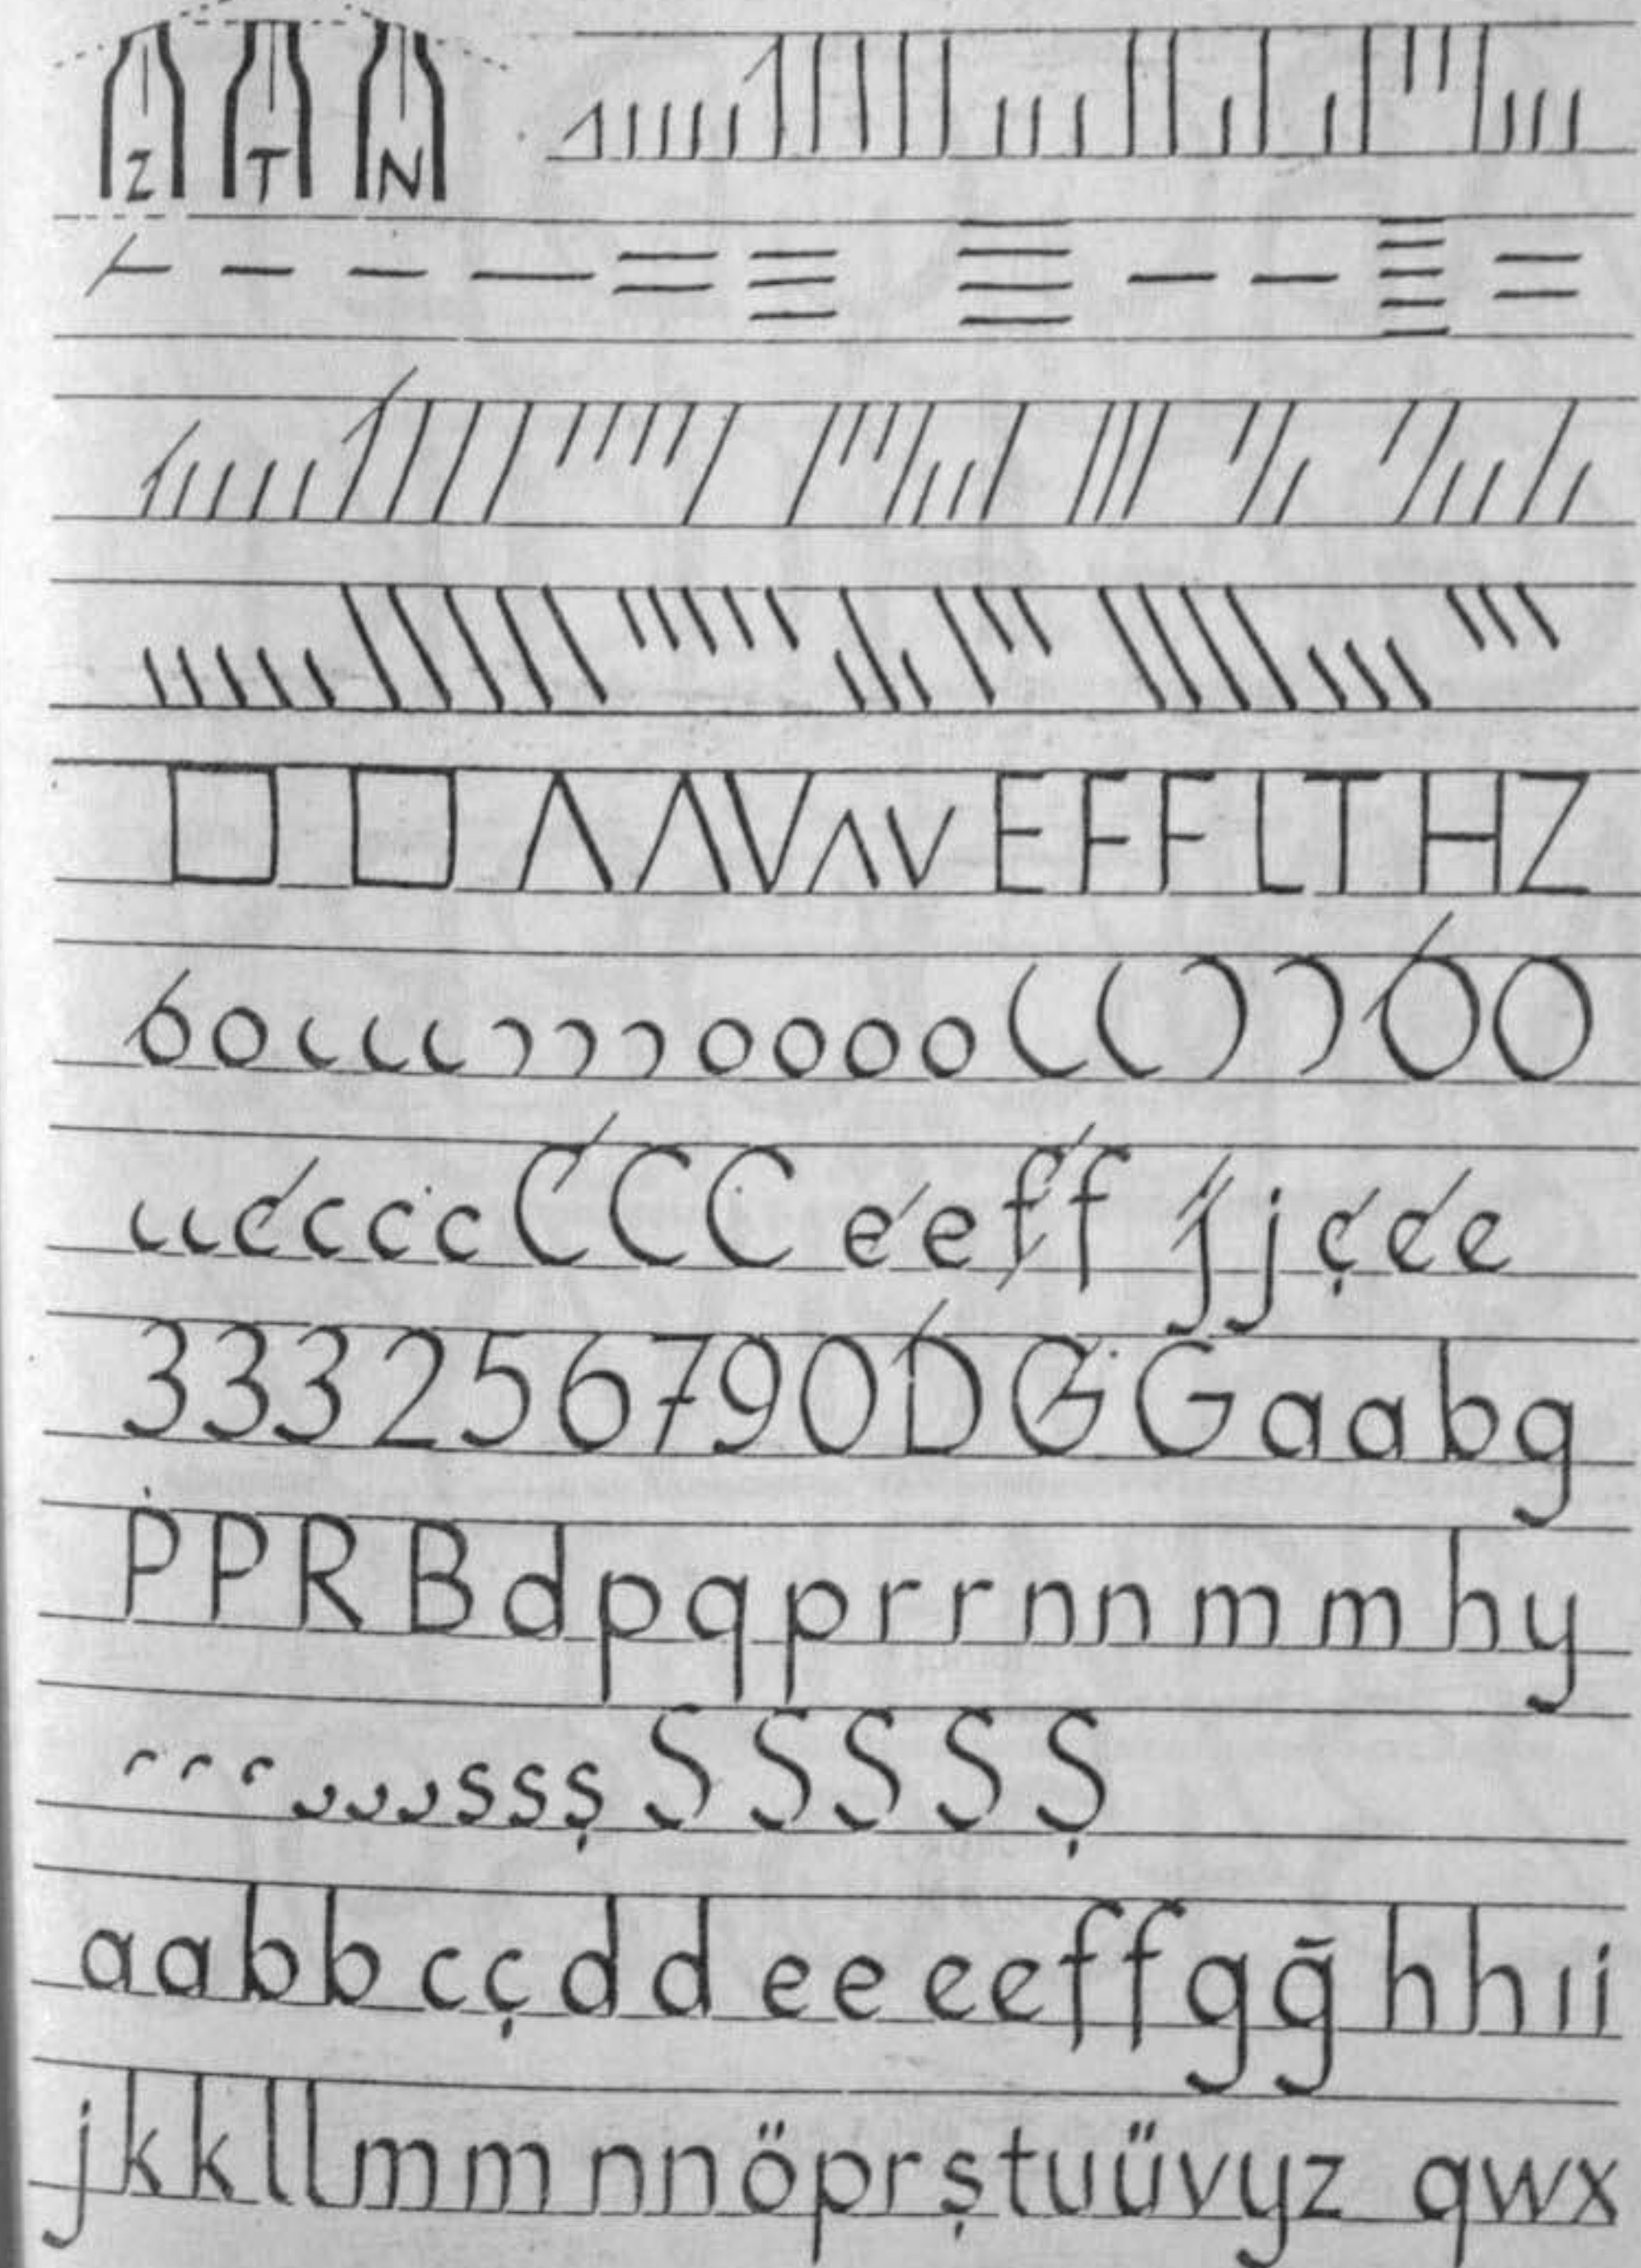 Z T N
Λ Λ V Λ V E F F L T H Z
6 o c c c o o o o 6 O
c c c c C C C e e f f j j ç e e
3 3 3 2 5 6 7 9 0 D G G a a b g
P P R B d p q p r r n n m m h y
s s ş S S S S Ş
a a b b c ç d d e e e e f f g ğ h h ı i
j k k l l m m n n ö p r ş t u ü v y z q w x